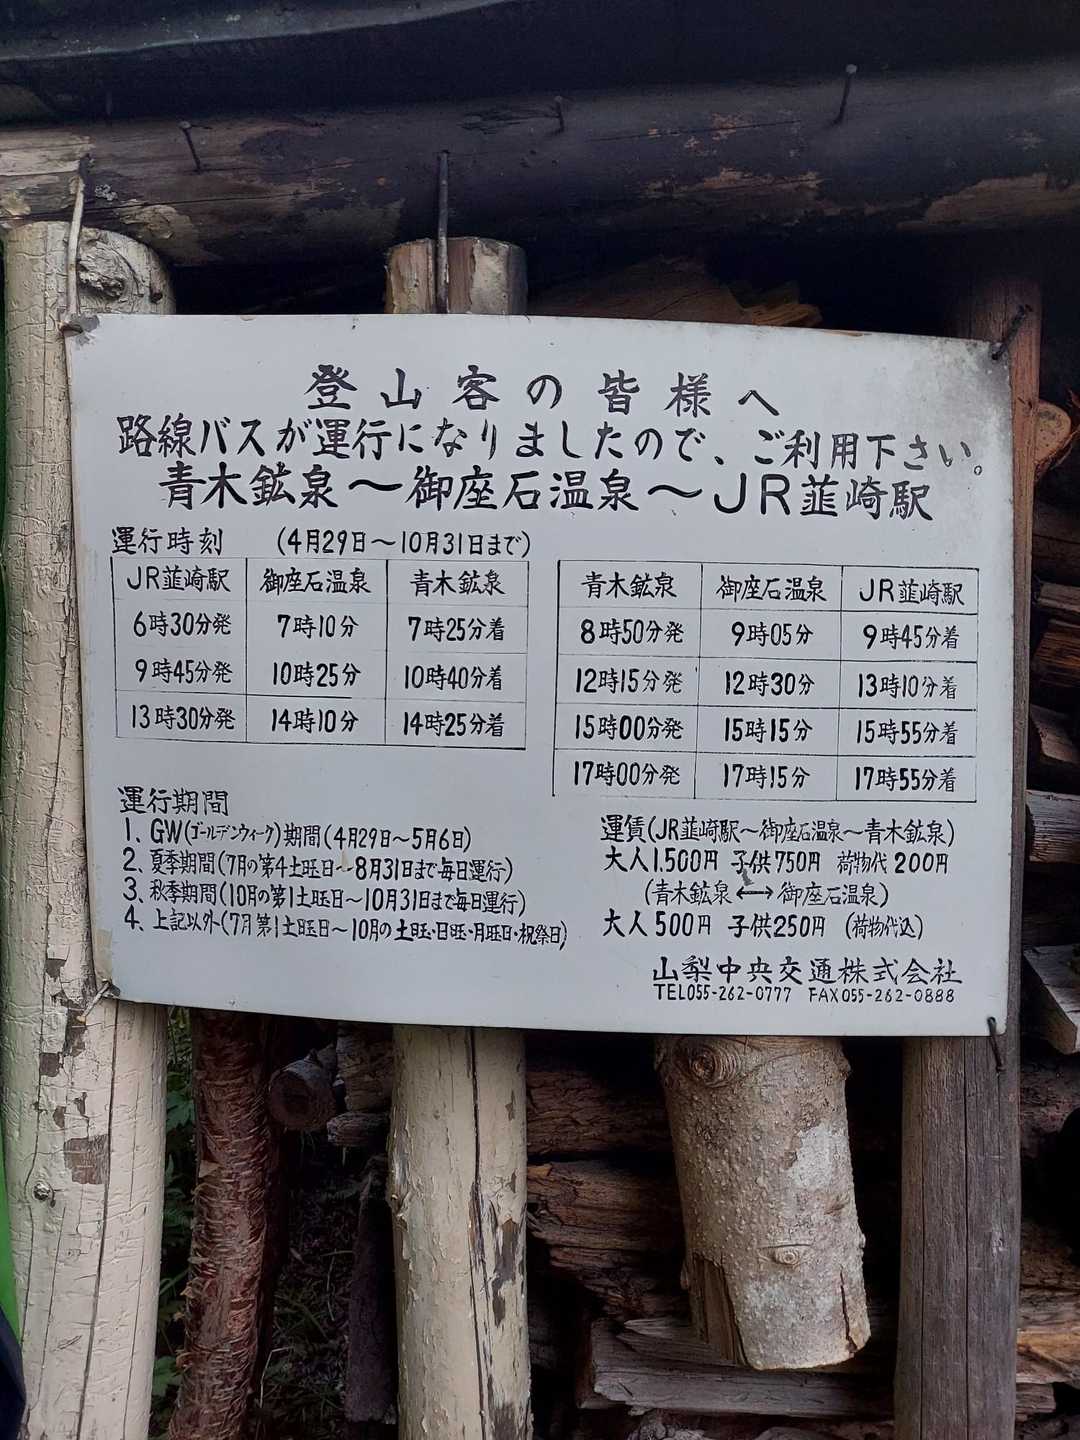 登山客の皆様へ
路線バスが運行になりましたので、ご利用下さい。
青木鉱泉～御座石温泉～JR韮崎駅
運行時刻 (4月29日～10月31日まで)
JR韮崎駅 御座石温泉 青木鉱泉
6時30分発 7時10分 7時25分着
9時45分発 10時25分 10時40分着
13時30分発 14時10分 14時25分着
青木鉱泉 御座石温泉 JR韮崎駅
8時50分発 9時05分 9時45分着
12時15分発 12時30分 13時10分着
15時00分発 15時15分 15時55分着
17時00分発 17時15分 17時55分着
運行期間
1、GW(ゴールデンウィーク)期間(4月29日～5月6日)
2、夏季期間(7月の第4土旺日～8月31日まで毎日運行)
3、秋季期間(10月の第1土旺日～10月31日まで毎日運行)
4、上記以外(7月第1土旺日～10月の土旺・日旺・月旺日・祝祭日)
運賃(JR韮崎駅～御座石温泉～青木鉱泉)
大人1.500円 子供750円 荷物代200円
(青木鉱泉⟷御座石温泉)
大人500円 子供250円 (荷物代込)
山梨中央交通株式会社
TEL055-262-0777 FAX055-262-0888